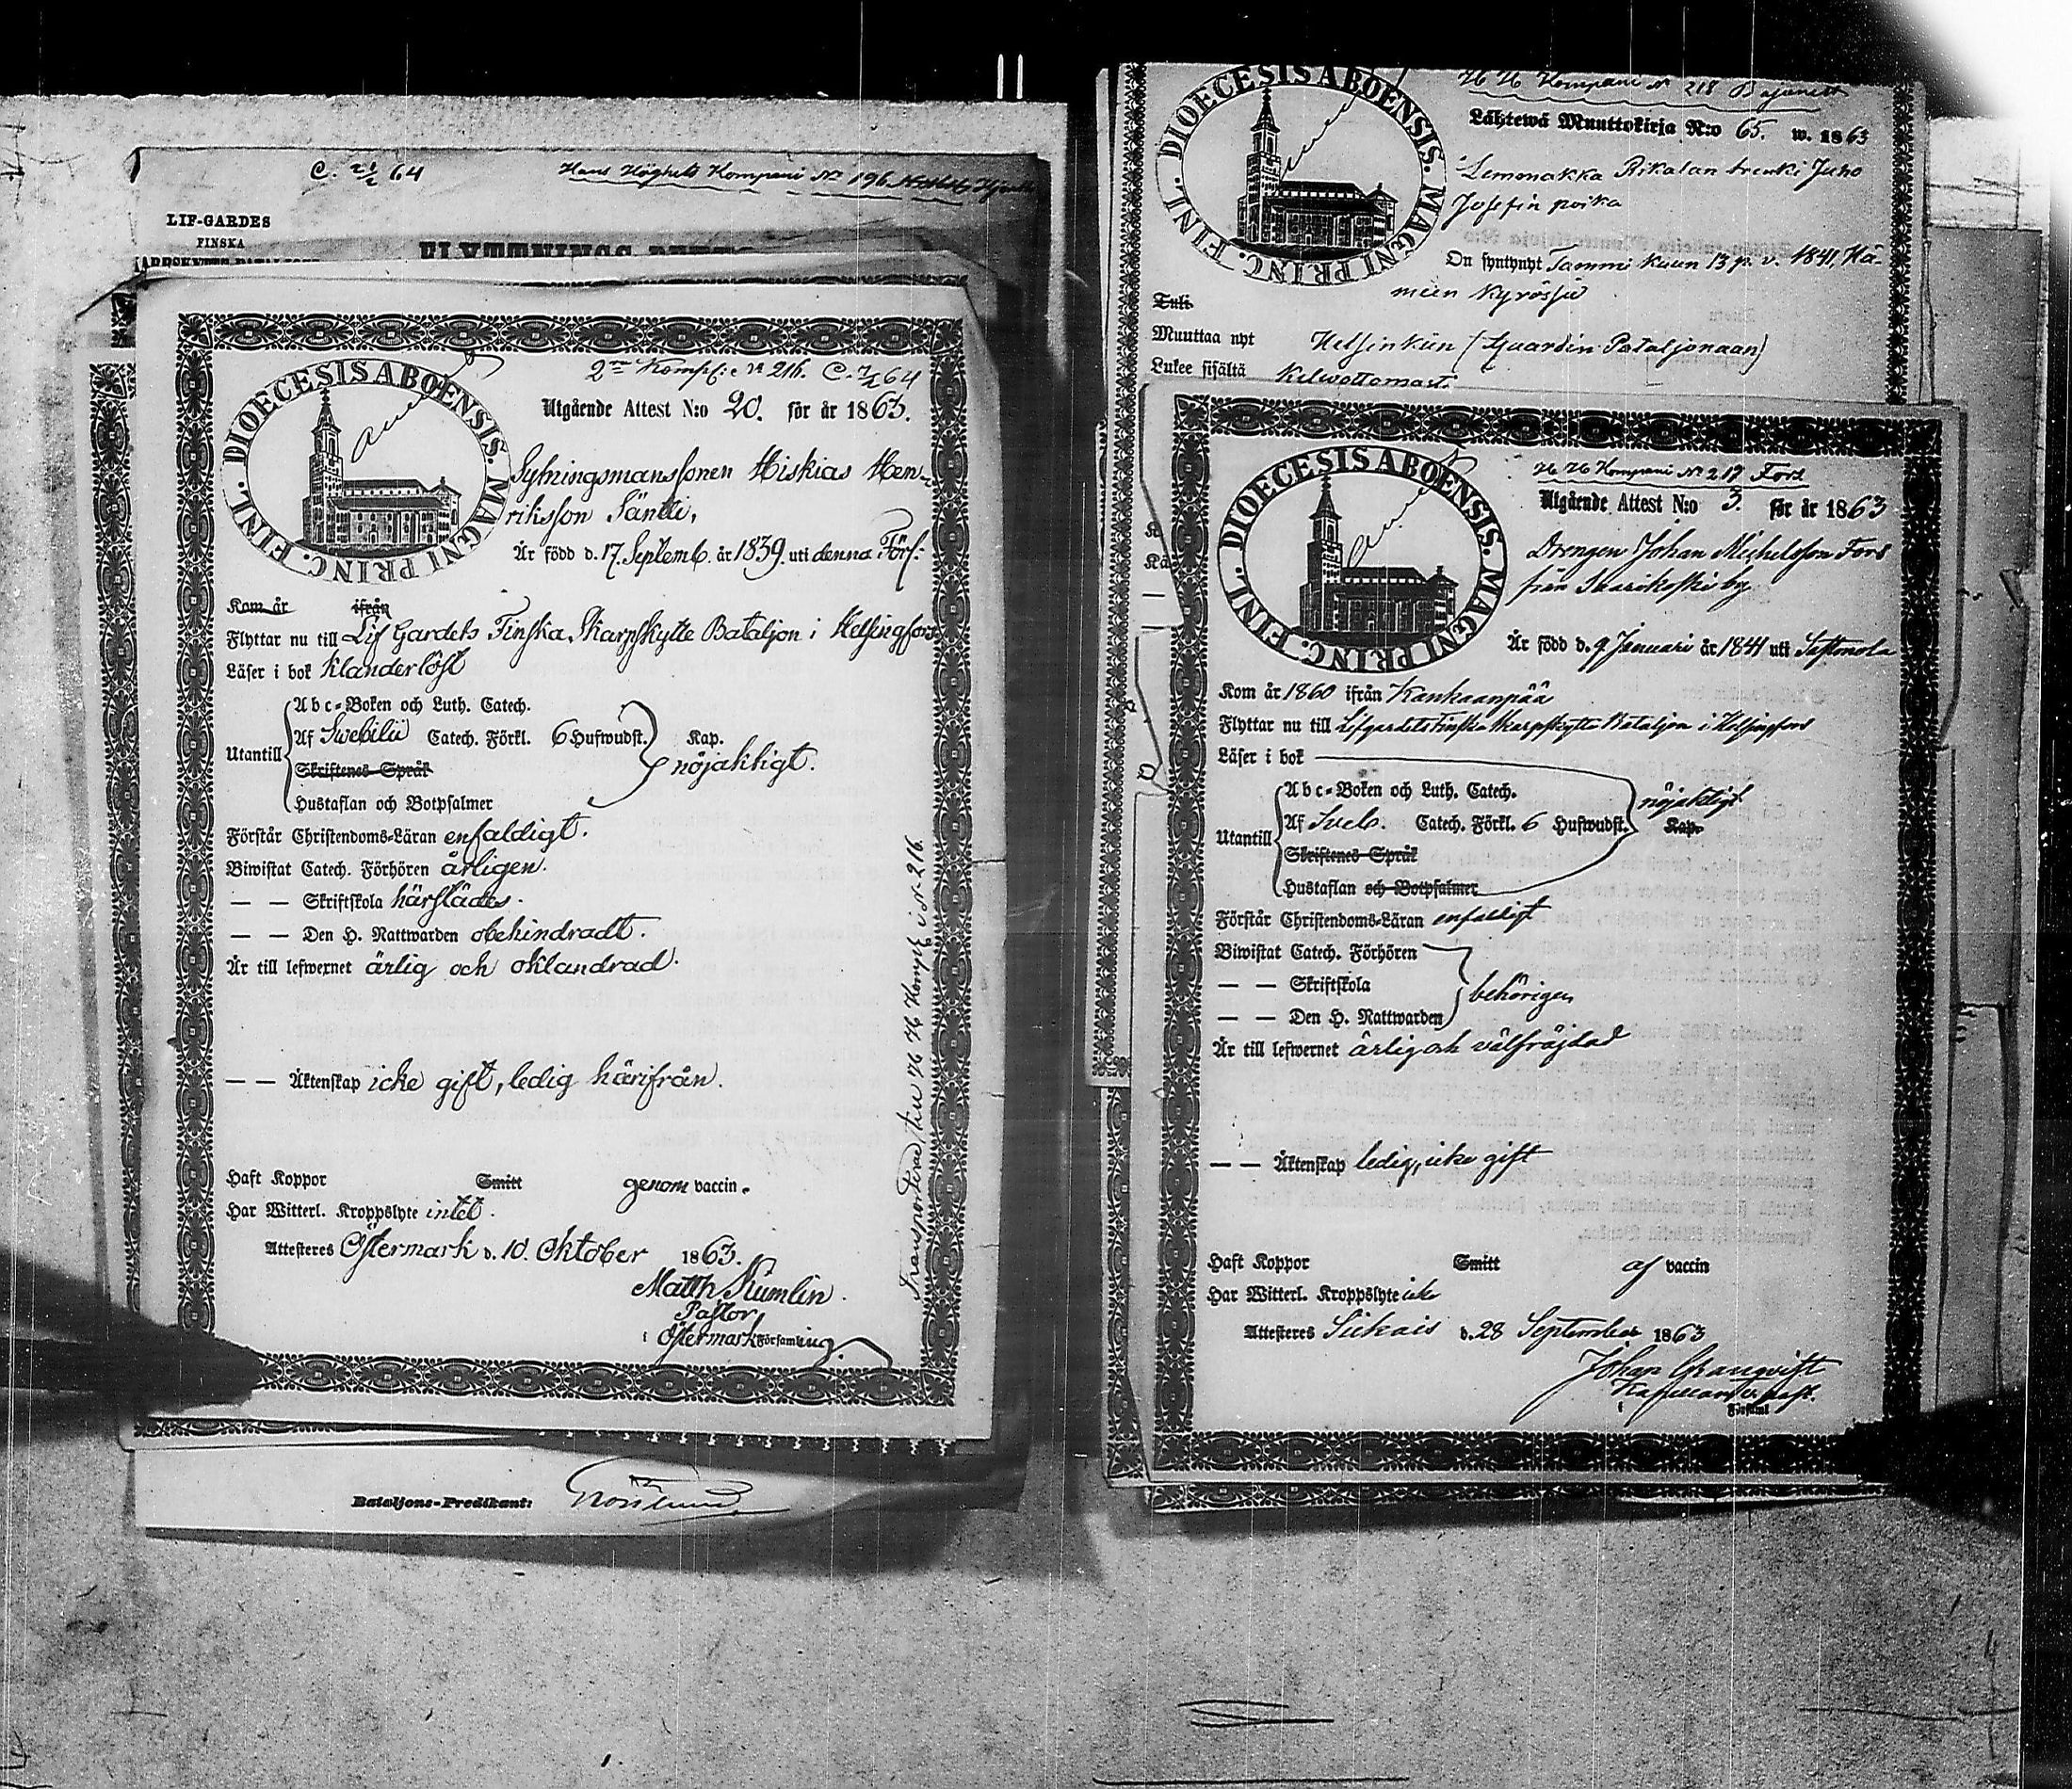 C. 21/2 64
Hans Höghets Kompani No 196
LIF-GARDES
FINSKA
DIOECESIS ABOENSIS. MAGNI PRINC. FINL.
2nne Komp:e No 216. C. 7/2 64
Utgående Attest N:o 20. för år 1863.
Sytningsmanssonen Hiskias Hen-
riksson Säntti,
Är född d. 17. Septemb. år 1839. uti denna Förs:
Kom år ifrån
Flyttar nu till Lif Gardets Finska Skarpskytte Bataljon i Helsingfors
Läser i bok klanderlöst
Abc-Boken och Luth. Catech.
Utantill Af Swebilii Catech. Förkl. 6 Hufwudst. Kap.
nöjaktligt.
Skriftenes Språk
Hustaflan och Botpsalmer
Förstår Christendoms-Läran enfaldigt.
Biwistat Catech. Förhören årligen.
— — Skriftskola härstädes.
— — Den H. Nattwarden obehindradt.
Är till lefwernet ärlig och oklandrad.
— — Äktenskap icke gift, ledig härifrån.
Haft Koppor Smitt genom vaccin.
Har Witterl. Kroppslyte intet.
Attesteres Östermark d. 10. Oktober 1863.
Matth Kumlin.
Pastor
i Östermark Församling.
Transporterad till H H Komp: i No 216.
Bataljons-Predikant:
H H Kompani No 218 Bajonett
DIOECESIS ABOENSIS. MAGNI PRINC. FINL.
Lähtewä Muuttokirja N:o 65. w. 1863
Lemmakka Rikalan trenki Juho
Josefin poika
On syntynyt Tammi kuun 13 p. v. 1841, Hä-
meen Kyrössä
Tuli
Muuttaa nyt Helsinkiin (Gaardin Pataljonaan)
Lukee sisältä Kelwottomast.
DIOECESIS ABOENSIS. MAGNI PRINC. FINL.
H H Kompani No 217 Fors
Utgående Attest N:o 3. för år 1863
Drengen Johan Michelsson Fors
från Saarikoski by
Är född d. 9 Januari år 1841 uti Sastmola
Kom år 1860 ifrån Kankaanpää
Flyttar nu till Lifgardets Finska Skarpskytte Bataljon i Helsingfors
Läser i bok
Abc-Boken och Luth. Catech. nöjaktligt
Utantill Af Sveb. Catech. Förkl. 6 Hufwudst. Kap.
Skriftenes Språk
Hustaflan och Botpsalmer
Förstår Christendoms-Läran enfaldigt
Biwistat Catech. Förhören
— — Skriftskola behörigen
— — Den H. Nattwarden
Är till lefwernet ärlig och välfräjdad
— — Äktenskap ledig, icke gift
Haft Koppor Smitt af vaccin
Har Witterl. Kroppslyte icke
Attesteres Siikais d. 28 September 1863
Johan Granqvist
Kapellan v. past.
i Församl